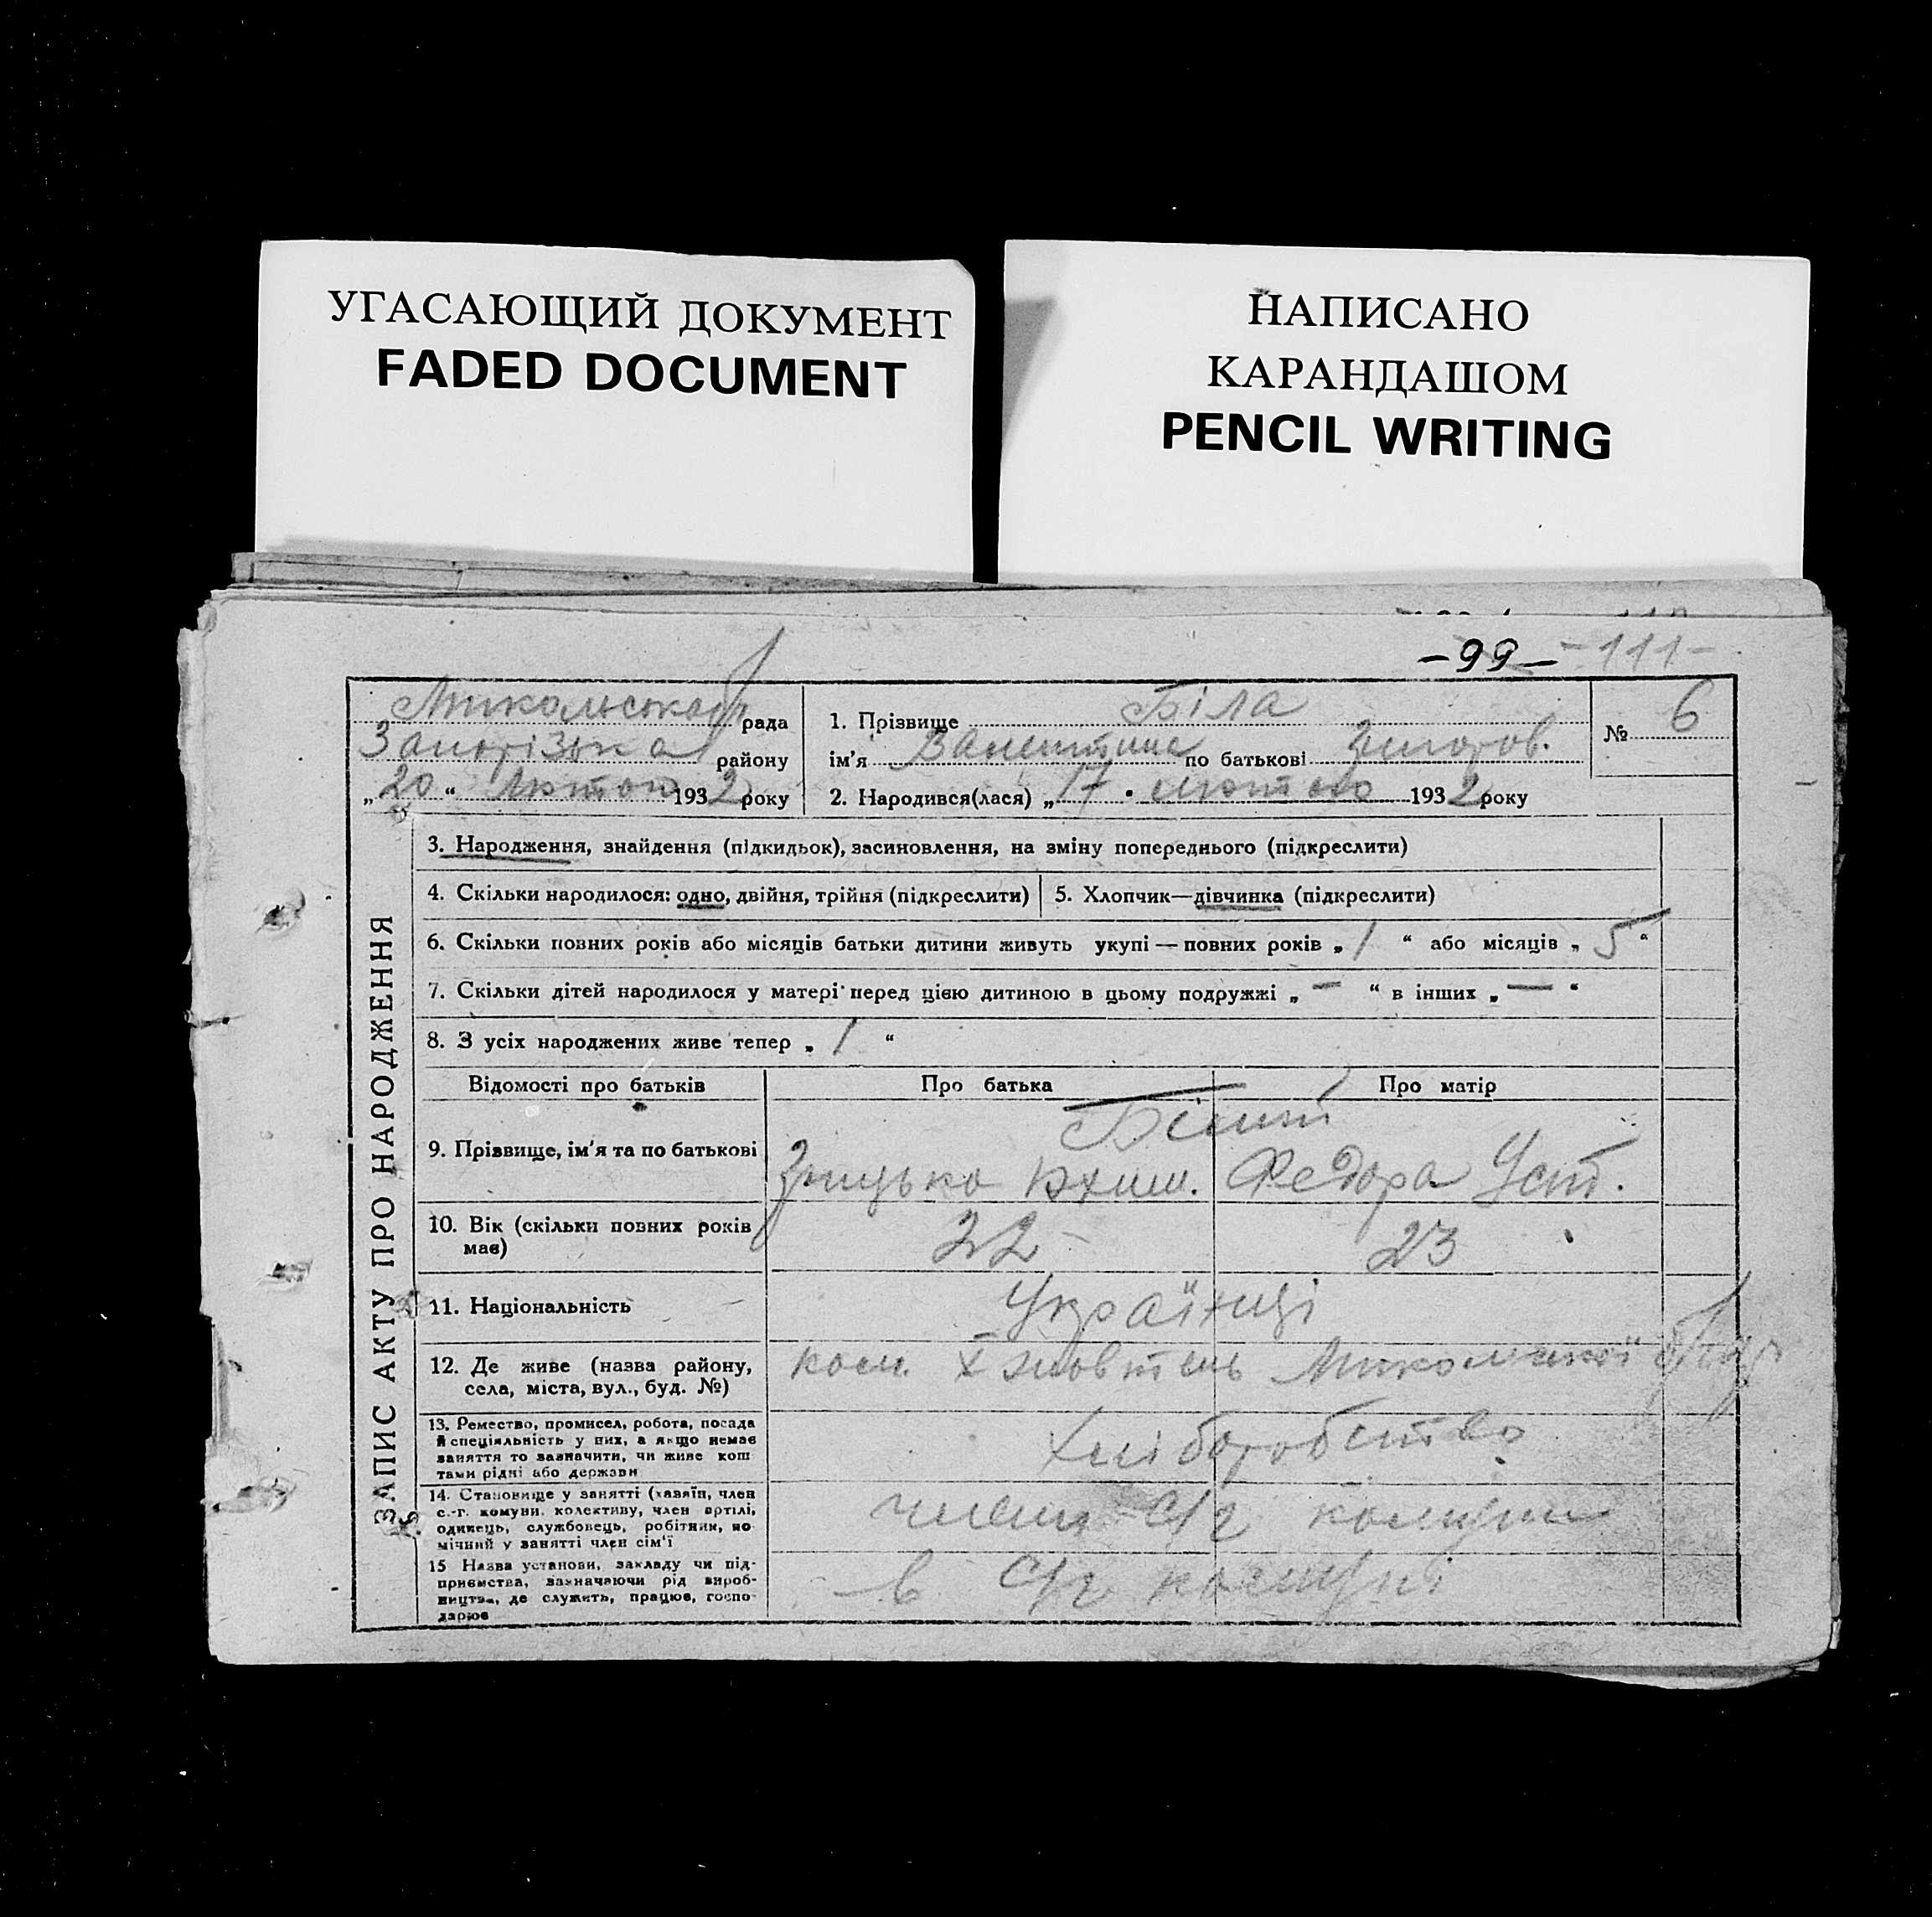 УГАСАЮЩИЙ ДОКУМЕНТ
FADED DOCUMENT
НАПИСАНО
КАРАНДАШОМ
PENCIL WRITING
-99- -111-
Микольська рада
Запорізька району
„20“ Лютого 1932 року
1. Прізвище Біла
ім'я Валентина по батькові Григоров.
2. Народився(лася) „17 " лютого 1932 року
№ 6
ЗАПИС АКТУ ПРО НАРОДЖЕННЯ
3. Народження, знайдення (підкидьок), засиновлення, на зміну попереднього (підкреслити)
4. Скільки народилося: одно, двійня, трійня (підкреслити)
5. Хлопчик—дівчинка (підкреслити)
6. Скільки повних років або місяців батьки дитини живуть укупі — повних років „ 1 “ або місяців „ 5 “
7. Скільки дітей народилося у матері перед цією дитиною в цьому подружжі „ — “ в інших „ — “
8. З усіх народжених живе тепер „ 1 “
Відомості про батьків Про батька Про матір
Білий
9. Прізвище, ім'я та по батькові Грицько Яхим. Федора Уст.
10. Вік (скільки повних років
має) 22 23
11. Національність Українці
12. Де живе (назва району,
села, міста, вул., буд. №) ком. Х жовтень Микольської
13. Ремество, промисел, робота, посада
й спеціяльність у них, а якщо немає
заняття то зазначити, чи живе кош
тами рідні або держави
Хліборобство
14. Становище у занятті (хазяїн, член
с.-г. комуни, колективу, член артілі,
одинець, службовець, робітник, по
мічний у занятті член сім'ї
члени С/г комуни
15 Назва установи, закладу чи під-
приємства, зазначаючи рід вироб-
ництва, де служить, працює, госпо-
дарює
в С/г. комуні